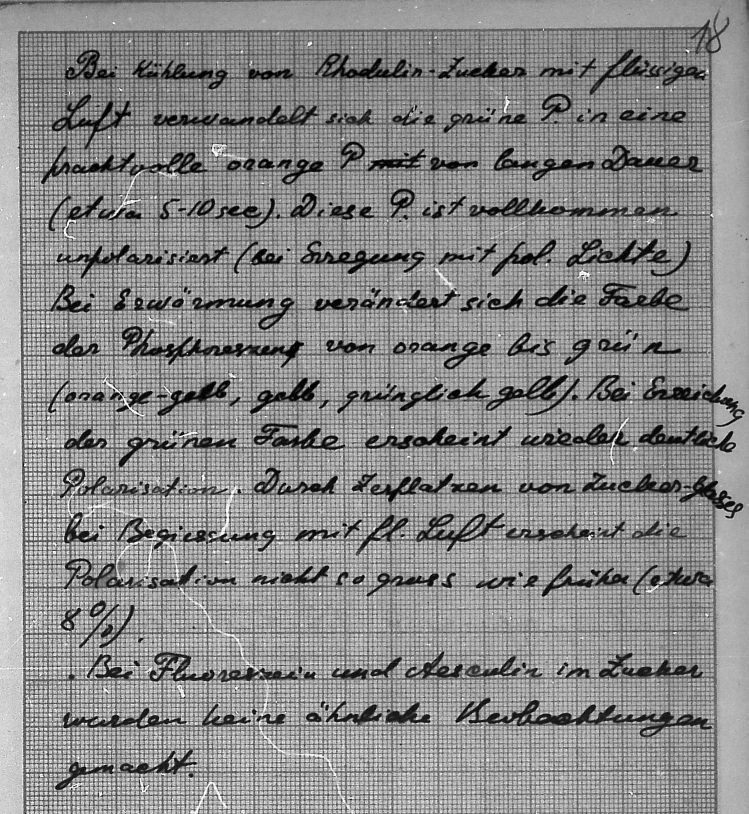 18
Bei Kühlung von Rhodulin-Zucker mit flüssiger
Luft verwandelt sich die grüne P. in eine
prachtvolle orange P mit von langen Dauer
(etwa 5-10 sec). Diese P. ist vollkommen
unpolarisiert (bei Erregung mit pol. Lichte)
Bei Erwärmung verändert sich die Farbe
der Phosphoreszenz von orange bis grün
(orange-gelb, gelb, grünglich gelb). Bei Erreichung
der grünen Farbe erscheint wieder deutlich
Polarisation. Durch Zerplatzen von Zucker-Glases
bei Begiessung mit fl. Luft erscheint die
Polarisation nicht so gross wie früher (etwa
8%).
. Bei Fluoreszein und Aesculin im Zucker
wurden keine ähnliche Beobachtungen
gemacht.